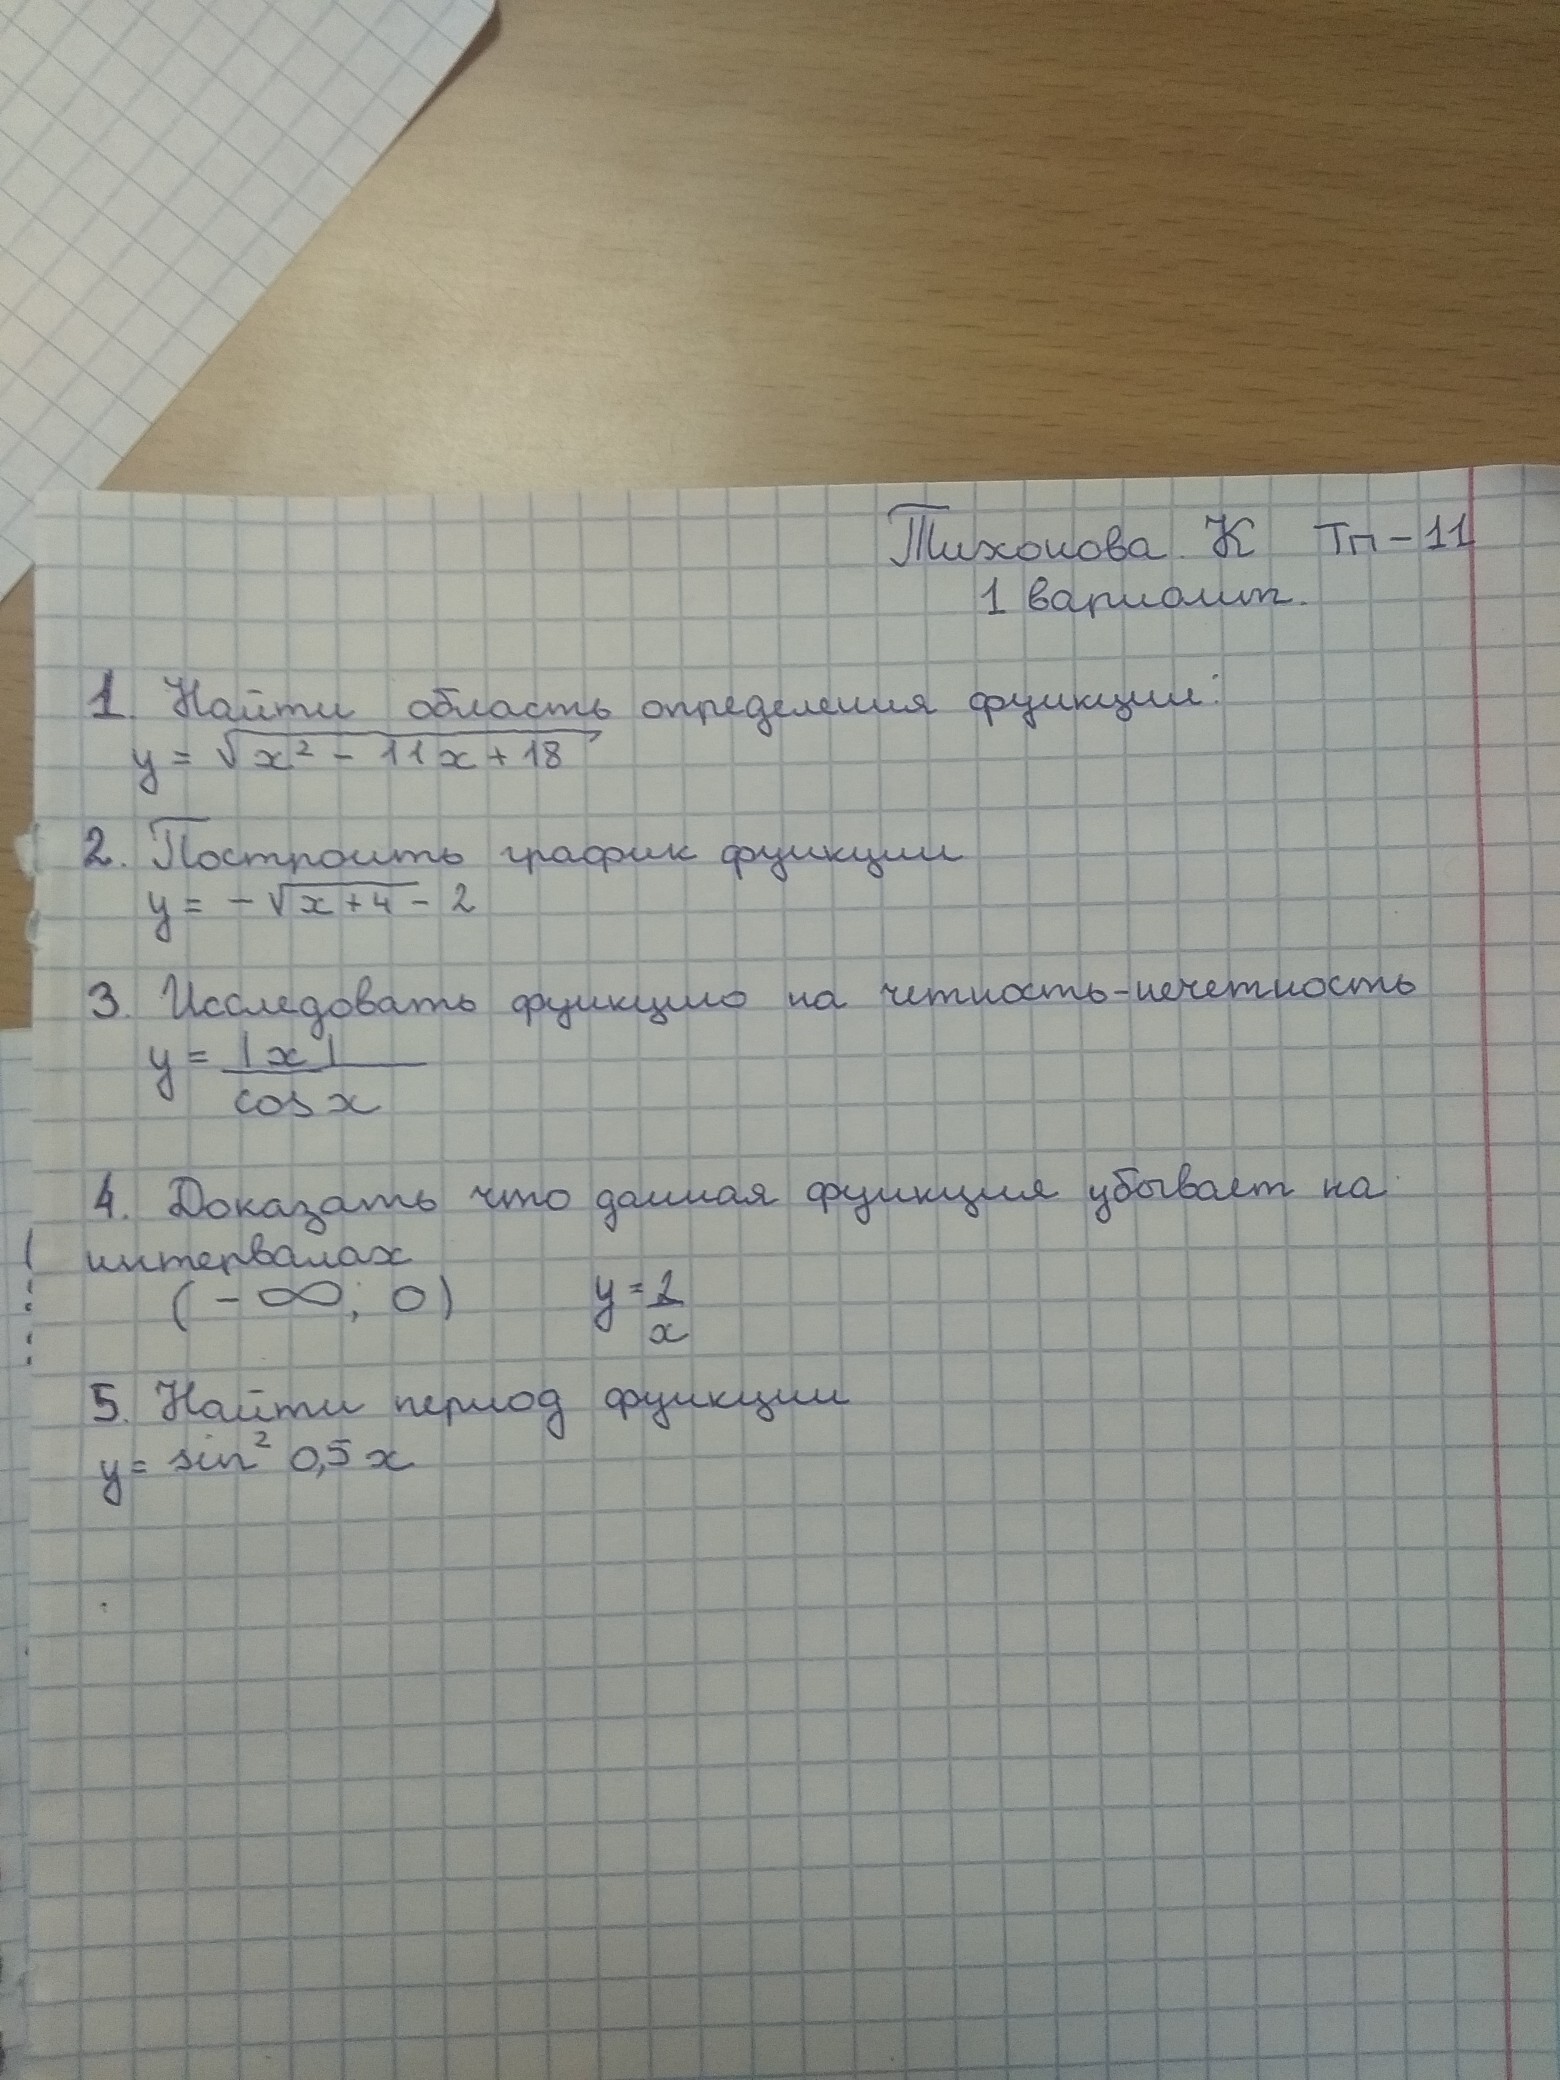 Тихонова К Тп-11
1 вариант.
1. Найти область определения функции:
y = √x² - 11x + 18
2. Построить график функции
y = -√x+4 - 2
3. Исследовать функцию на четность-нечетность
y = |x|
cos x
4. Доказать что данная функция убывает на
интервалах
(-∞; 0) y =
x
5. Найти период функции
y = sin² 0,5x